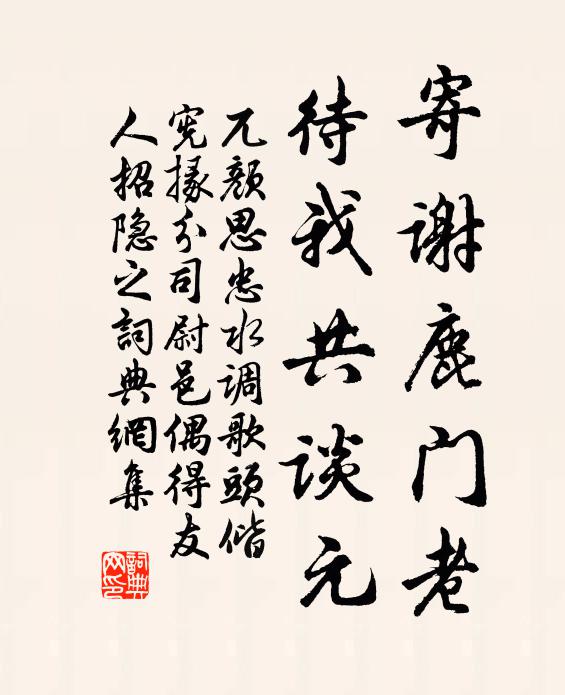 寄谢鹿门老
待我共谈元
兀颜思忠水调歌頭偕
宪掾分司尉邑偶得友
人招隐之詞典網集
詞典
网印